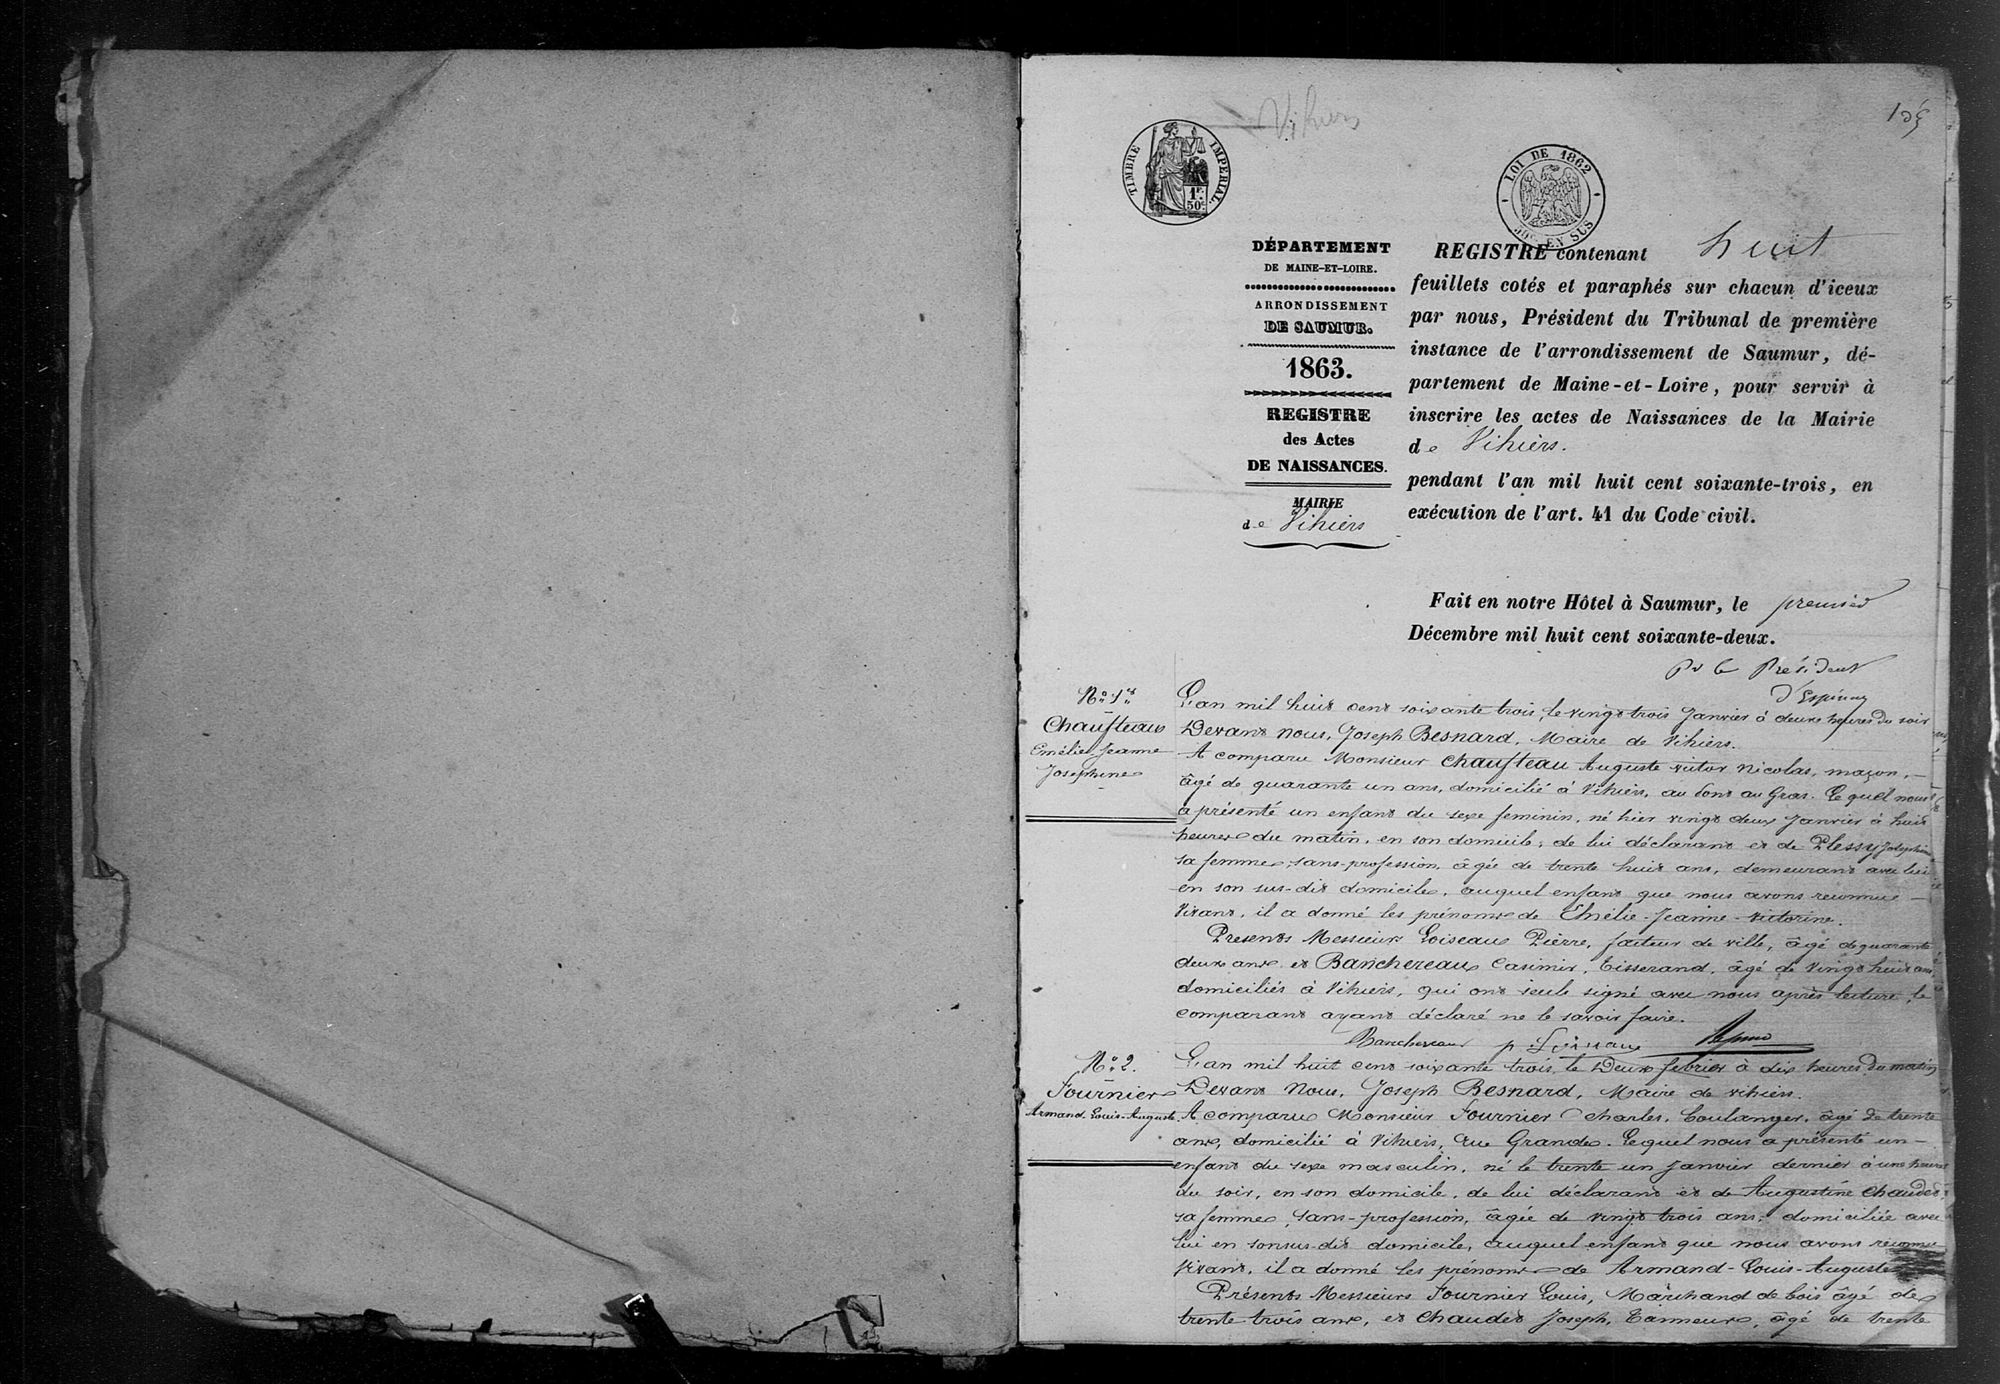 Vihiers
TIMBRE IMPERIAL
1F.
50c
LOI DE 1862
EN SUS
DÉPARTEMENT
DE MAINE-ET-LOIRE.
ARRONDISSEMENT
DE SAUMUR.
1863.
REGISTRE
des Actes
DE NAISSANCES.
MAIRIE
de Vihiers
REGISTRE contenant huit
feuillets cotés et paraphés sur chacun d'iceux
par nous, Président du Tribunal de première
instance de l'arrondissement de Saumur, dé-
partement de Maine-et-Loire, pour servir à
inscrire les actes de Naissances de la Mairie
de Vihiers.
pendant l'an mil huit cent soixante-trois, en
exécution de l'art. 41 du Code civil.
Fait en notre Hôtel à Saumur, le premier
Décembre mil huit cent soixante-deux.
Pr le Président
d'Espinay
No. 1er
Chaufteau
Emélie Jeanne
Josephine
L'an mil huit cent soixante trois, le vingt trois Janvier à deux heures du soir
Devant Nous, Joseph Besnard, Maire de Vihiers.
A comparu Monsieur Chaufteau Auguste victor Nicolas, maçon,
âgé de quarante un ans, domicilié à Vihiers, au Gras. Lequel nous
a présenté un enfant du sexe feminin, né hier vingt deux Janvier à huit
heures du matin, en son domicile, de lui déclarant et de Plessy Joséphine
sa femme, sans-profession, âgée de trente huit ans, demeurant avec lui
en son sus-dit domicile, auquel enfant que nous avons reconnue
Vivant, il a donné les prénoms de Emélie-Jeanne-Victorine.
Présents Messieurs Loiseau Pierre, facteur de ville, âgé de quarante
deux ans et Banchereau Casimir, Tisserand, âgé de vingt huit ans
domiciliés à Vihiers, qui ont seuls signé avec nous après lecture, le
comparant ayant déclaré ne le savoir faire.
Banchereau p. Loiseau Besnard
No. 2.
Fournier
Armand Louis-Auguste
L'an mil huit cent soixante trois, le Deux février à dix heures du matin
Devant Nous, Joseph Besnard, Maire de Vihiers.
A comparu Monsieur Fournier Charles, boulanger, âgé de trente
ans, domicilié à Vihiers, rue Grande. Lequel nous a présenté un
enfant du sexe masculin, né le trente un Janvier dernier à une heure
du soir, en son domicile, de lui déclarant et de Augustine Chaudet
sa femme, sans-profession, âgée de vingt trois ans, domiciliée avec
lui en son sus-dit domicile, auquel enfant que nous avons reconnu
Vivant, il a donné les prénoms de Armand-Louis-Auguste
Présents Messieurs Fournier Louis, Marchand de bois âgé de
trente trois ans, et Chaudet Joseph, Tanneur, âgé de trente